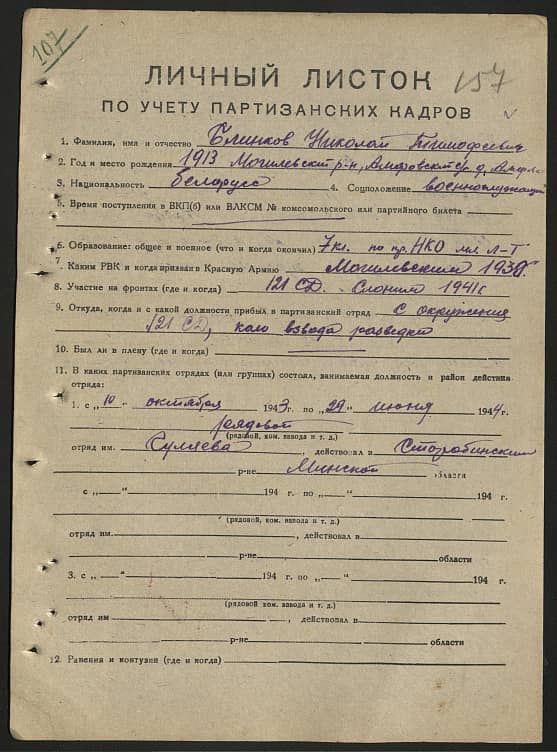 107
157
ЛИЧНЫЙ ЛИСТОК
ПО УЧЕТУ ПАРТИЗАНСКИХ КАДРОВ
1. Фамилия, имя и отчество Блинков Николай Тимофеевич
2. Год и место рождения 1913 Могилевский р-н,
3. Национальность белорусс 4. Соцположение военнослужащий
5. Время поступления в ВКП(б) или ВЛКСМ № комсомольского или партийного билета
6. Образование: общее и военное (что и когда окончил) 7 кл. по пр. НКО мл л-т
7. Каким РВК и когда призван в Красную Армию Могилевским 1939.
8. Участие на фронтах (где и когда) 121 СД. Слоним 1941г
9. Откуда, когда и с какой должности прибыл в партизанский отряд с окружения
121 СД, ком взвода разведки
10. Был ли в плену (где и когда)
11. В каких партизанских отрядах (или группах) состоял, занимаемая должность и район действия
отряда:
1. с „10“ октября 1943 г. по „29“ июня 1944 г.
рядовой
(рядовой, ком. взвода и т. д.)
отряд им. Суляева, действовал в Старобинским
р-не Минской области
с „—“ 194 г. по „—“ 194 г.
(рядовой, ком. взвода и т. д.)
отряд им. , действовал в
р-не области
3. с „—“ 194 г. по „—“ 194 г.
(рядовой ком. взвода и т. д.)
отряд им , действовал в
р-не области
12. Ранения и контузии (где и когда)